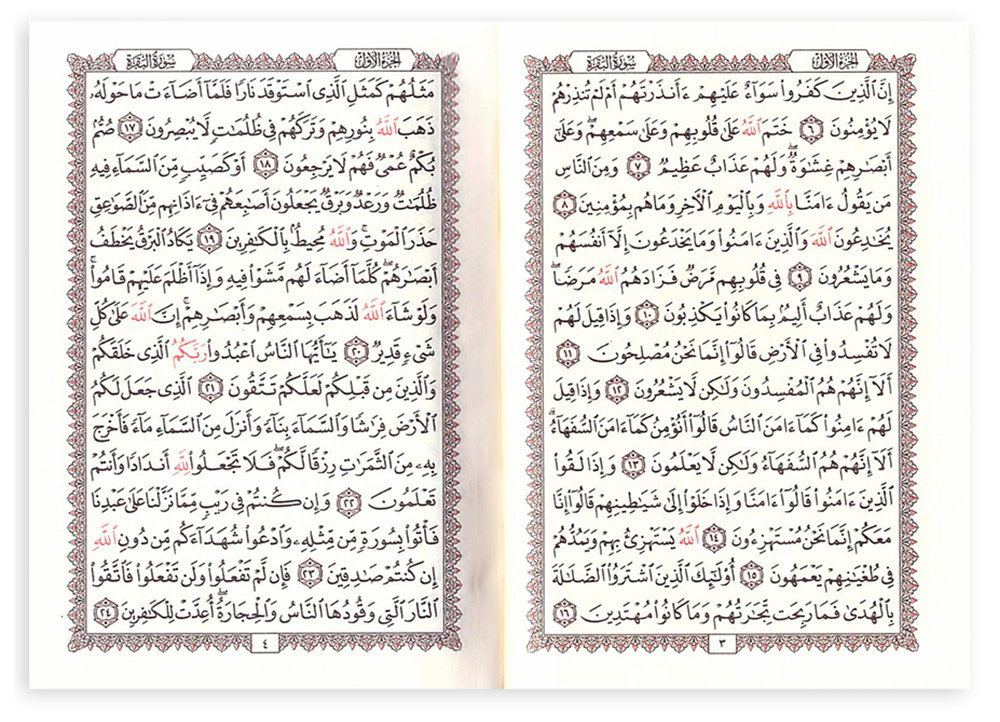 الجزء الأول
سورة البقرة
إِنَّ ٱلَّذِينَ كَفَرُوا۟ سَوَآءٌ عَلَيْهِمْ ءَأَنذَرْتَهُمْ أَمْ لَمْ تُنذِرْهُمْ
لَا يُؤْمِنُونَ ٦ خَتَمَ ٱللَّهُ عَلَىٰ قُلُوبِهِمْ وَعَلَىٰ سَمْعِهِمْ ۖ وَعَلَىٰٓ
أَبْصَٰرِهِمْ غِشَٰوَةٌ ۖ وَلَهُمْ عَذَابٌ عَظِيمٌ ٧ وَمِنَ ٱلنَّاسِ
مَن يَقُولُ ءَامَنَّا بِٱللَّهِ وَبِٱلْيَوْمِ ٱلْءَاخِرِ وَمَا هُم بِمُؤْمِنِينَ ٨
يُخَٰدِعُونَ ٱللَّهَ وَٱلَّذِينَ ءَامَنُوا۟ وَمَا يَخْدَعُونَ إِلَّآ أَنفُسَهُمْ
وَمَا يَشْعُرُونَ ٩ فِى قُلُوبِهِم مَّرَضٌ فَزَادَهُمُ ٱللَّهُ مَرَضًا ۖ
وَلَهُمْ عَذَابٌ أَلِيمٌۢ بِمَا كَانُوا۟ يَكْذِبُونَ ١٠ وَإِذَا قِيلَ لَهُمْ
لَا تُفْسِدُوا۟ فِى ٱلْأَرْضِ قَالُوٓا۟ إِنَّمَا نَحْنُ مُصْلِحُونَ ١١
أَلَآ إِنَّهُمْ هُمُ ٱلْمُفْسِدُونَ وَلَٰكِن لَّا يَشْعُرُونَ ١٢ وَإِذَا قِيلَ
لَهُمْ ءَامِنُوا۟ كَمَآ ءَامَنَ ٱلنَّاسُ قَالُوٓا۟ أَنُؤْمِنُ كَمَآ ءَامَنَ ٱلسُّفَهَآءُ ۗ
أَلَآ إِنَّهُمْ هُمُ ٱلسُّفَهَآءُ وَلَٰكِن لَّا يَعْلَمُونَ ١٣ وَإِذَا لَقُوا۟
ٱلَّذِينَ ءَامَنُوا۟ قَالُوٓا۟ ءَامَنَّا وَإِذَا خَلَوْا۟ إِلَىٰ شَيَٰطِينِهِمْ قَالُوٓا۟ إِنَّا
مَعَكُمْ إِنَّمَا نَحْنُ مُسْتَهْزِءُونَ ١٤ ٱللَّهُ يَسْتَهْزِئُ بِهِمْ وَيَمُدُّهُمْ
فِى طُغْيَٰنِهِمْ يَعْمَهُونَ ١٥ أُو۟لَٰٓئِكَ ٱلَّذِينَ ٱشْتَرَوُا۟ ٱلضَّلَٰلَةَ
بِٱلْهُدَىٰ فَمَا رَبِحَت تِّجَٰرَتُهُمْ وَمَا كَانُوا۟ مُهْتَدِينَ ١٦
٣
الجزء الأول
سورة البقرة
مَثَلُهُمْ كَمَثَلِ ٱلَّذِى ٱسْتَوْقَدَ نَارًا فَلَمَّآ أَضَآءَتْ مَا حَوْلَهُۥ
ذَهَبَ ٱللَّهُ بِنُورِهِمْ وَتَرَكَهُمْ فِى ظُلُمَٰتٍ لَّا يُبْصِرُونَ ١٧ صُمٌّۢ
بُكْمٌ عُمْىٌ فَهُمْ لَا يَرْجِعُونَ ١٨ أَوْ كَصَيِّبٍ مِّنَ ٱلسَّمَآءِ فِيهِ
ظُلُمَٰتٌ وَرَعْدٌ وَبَرْقٌ يَجْعَلُونَ أَصَٰبِعَهُمْ فِىٓ ءَاذَانِهِم مِّنَ ٱلصَّوَٰعِقِ
حَذَرَ ٱلْمَوْتِ ۚ وَٱللَّهُ مُحِيطٌۢ بِٱلْكَٰفِرِينَ ١٩ يَكَادُ ٱلْبَرْقُ يَخْطَفُ
أَبْصَٰرَهُمْ ۖ كُلَّمَآ أَضَآءَ لَهُم مَّشَوْا۟ فِيهِ وَإِذَآ أَظْلَمَ عَلَيْهِمْ قَامُوا۟ ۚ
وَلَوْ شَآءَ ٱللَّهُ لَذَهَبَ بِسَمْعِهِمْ وَأَبْصَٰرِهِمْ ۚ إِنَّ ٱللَّهَ عَلَىٰ كُلِّ
شَىْءٍ قَدِيرٌ ٢٠ يَٰٓأَيُّهَا ٱلنَّاسُ ٱعْبُدُوا۟ رَبَّكُمُ ٱلَّذِى خَلَقَكُمْ
وَٱلَّذِينَ مِن قَبْلِكُمْ لَعَلَّكُمْ تَتَّقُونَ ٢١ ٱلَّذِى جَعَلَ لَكُمُ
ٱلْأَرْضَ فِرَٰشًا وَٱلسَّمَآءَ بِنَآءً وَأَنزَلَ مِنَ ٱلسَّمَآءِ مَآءً فَأَخْرَجَ
بِهِۦ مِنَ ٱلثَّمَرَٰتِ رِزْقًا لَّكُمْ ۖ فَلَا تَجْعَلُوا۟ لِلَّهِ أَندَادًا وَأَنتُمْ
تَعْلَمُونَ ٢٢ وَإِن كُنتُمْ فِى رَيْبٍ مِّمَّا نَزَّلْنَا عَلَىٰ عَبْدِنَا
فَأْتُوا۟ بِسُورَةٍ مِّن مِّثْلِهِۦ وَٱدْعُوا۟ شُهَدَآءَكُم مِّن دُونِ ٱللَّهِ
إِن كُنتُمْ صَٰدِقِينَ ٢٣ فَإِن لَّمْ تَفْعَلُوا۟ وَلَن تَفْعَلُوا۟ فَٱتَّقُوا۟
ٱلنَّارَ ٱلَّتِى وَقُودُهَا ٱلنَّاسُ وَٱلْحِجَارَةُ ۖ أُعِدَّتْ لِلْكَٰفِرِينَ ٢٤
٤